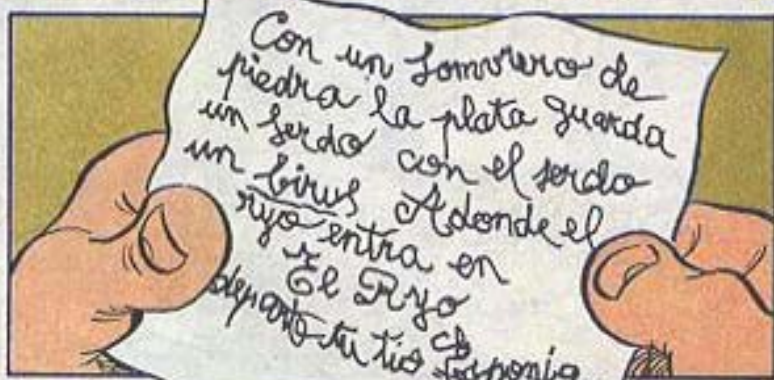 Con un Somvrero de
piedra la plata guarda
un Serdo con el serdo
un birus Adonde el
ryo entra en
El Ryo
tu tio